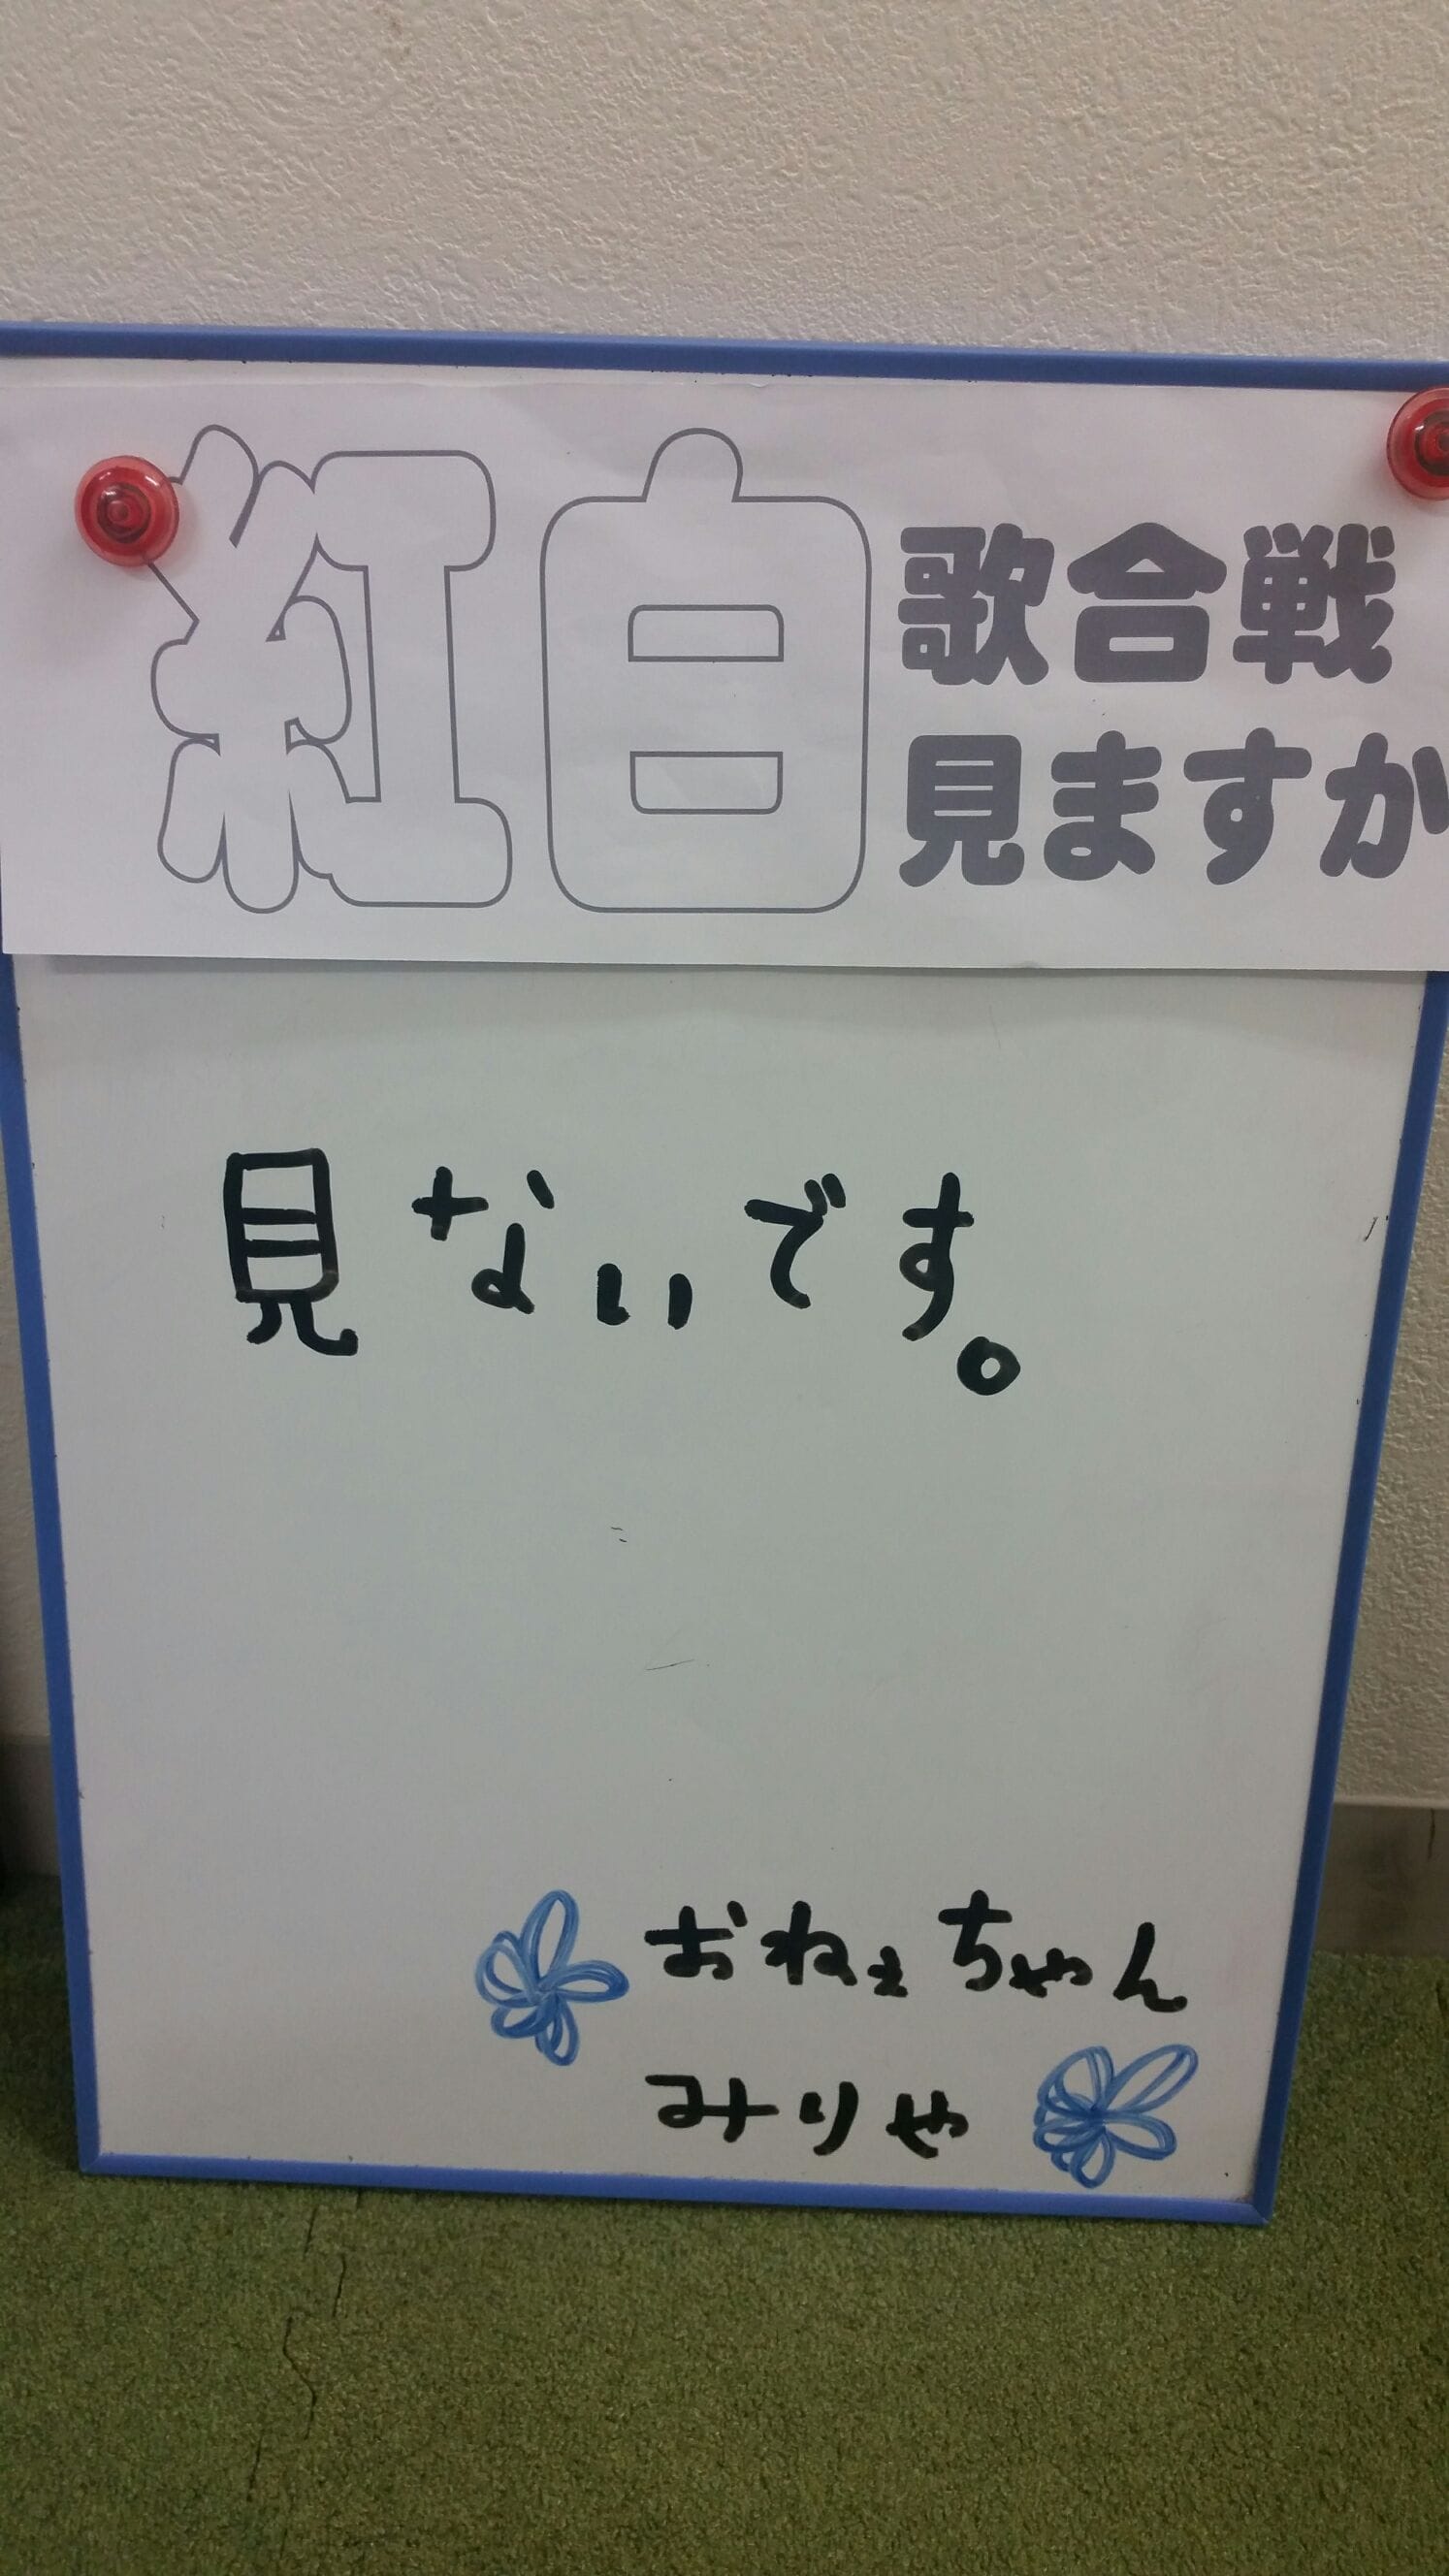 紅白歌合戦
見ますか
見ないです。
おねぇちゃん
みりや